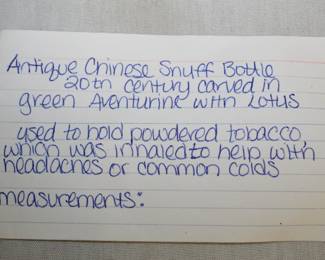 Antique Chinese Snuff Bottle
20th century carved in
green Aventurine with Lotus
used to hold powdered tobacco,
which was inhaled to help with
headaches or common colds
measurements: